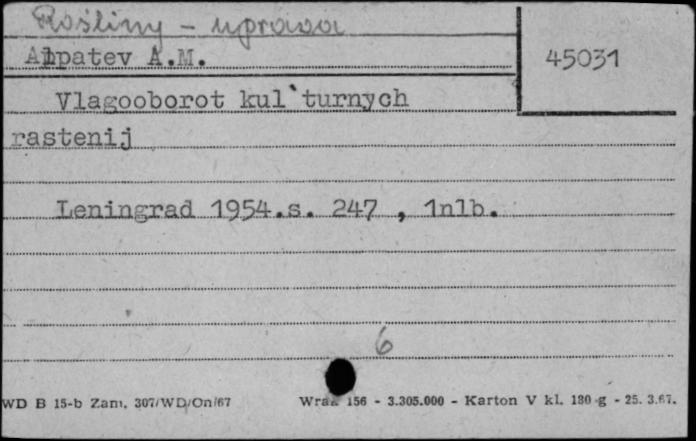 Rośliny - uprawa
Alpatev A.M.
45031
Vlagooborot kul'turnych
rastenij
Leningrad 1954.s. 247 , 1nlb.
6
WD B 15-b Zam. 307/WD/On/67
Wrak 156 - 3.305.000 - Karton V kl. 180 g - 25. 3.67.